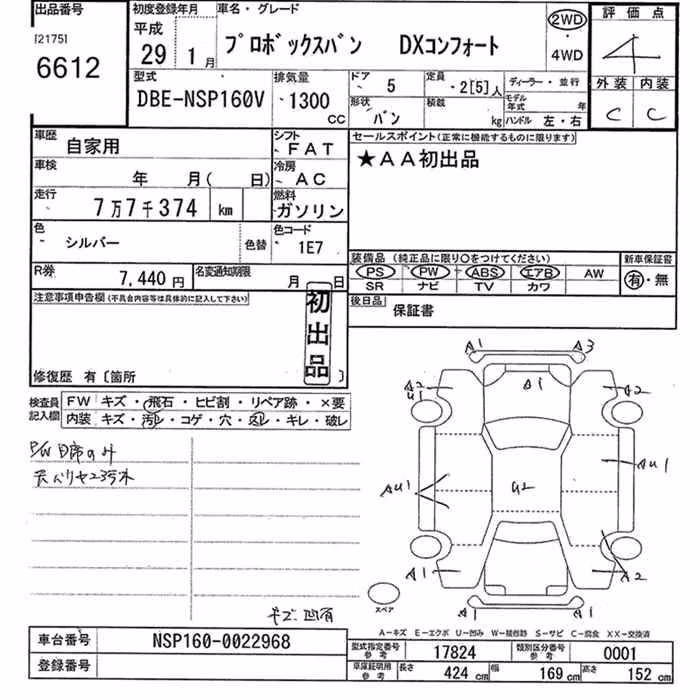 出品番号
[2175]
6612
初度登録年月
平成
29 1月
車名・グレード
プロボックスバン DXコンフォート
2WD
・
4WD
評価点
4
外装 内装
C C
型式
DBE-NSP160V
排気量
1300
CC
ドア 5
形状
バン
定員
2[5]人
積載
kg
ディーラー・並行
モデル年式 年
ハンドル 左・右
車歴 自家用
シフト
FAT
車検 年 月( 日)
冷房
AC
走行 7万7千374 km
燃料
ガソリン
色
シルバー
色替
色コード
1E7
R券
7,440円
名変通知期限
月 日
セールスポイント(正常に機能するものに限ります)
★AA初出品
装備品 (純正品に限り○をつけてください)
PS PW ABS エアB AW
SR ナビ TV カワ
新車保証書
有・無
後日品
保証書
注意事項申告欄(不具合内容等は具体的に記入して下さい)
初出品
修復歴 有〔箇所
検査員記入欄
FW キズ・飛石・ヒビ割・リペア跡・×要
内装 キズ・汚レ・コゲ・穴・凹レ・キレ・破レ
P/W D席のみ
キズ 凹有
A1 A3
A2 U1 A1 A2
AU1 U2 AU1
A1 A2
A1 A1
スペア
A-キズ E-エクボ U-凹み W-補修跡 S-サビ C-腐食 XX-交換済
車台番号 NSP160-0022968
登録番号
型式指定番号 参考 17824
類別区分番号 参考 0001
車庫証明用 参考
長さ 424cm 幅 169cm 高さ 152cm